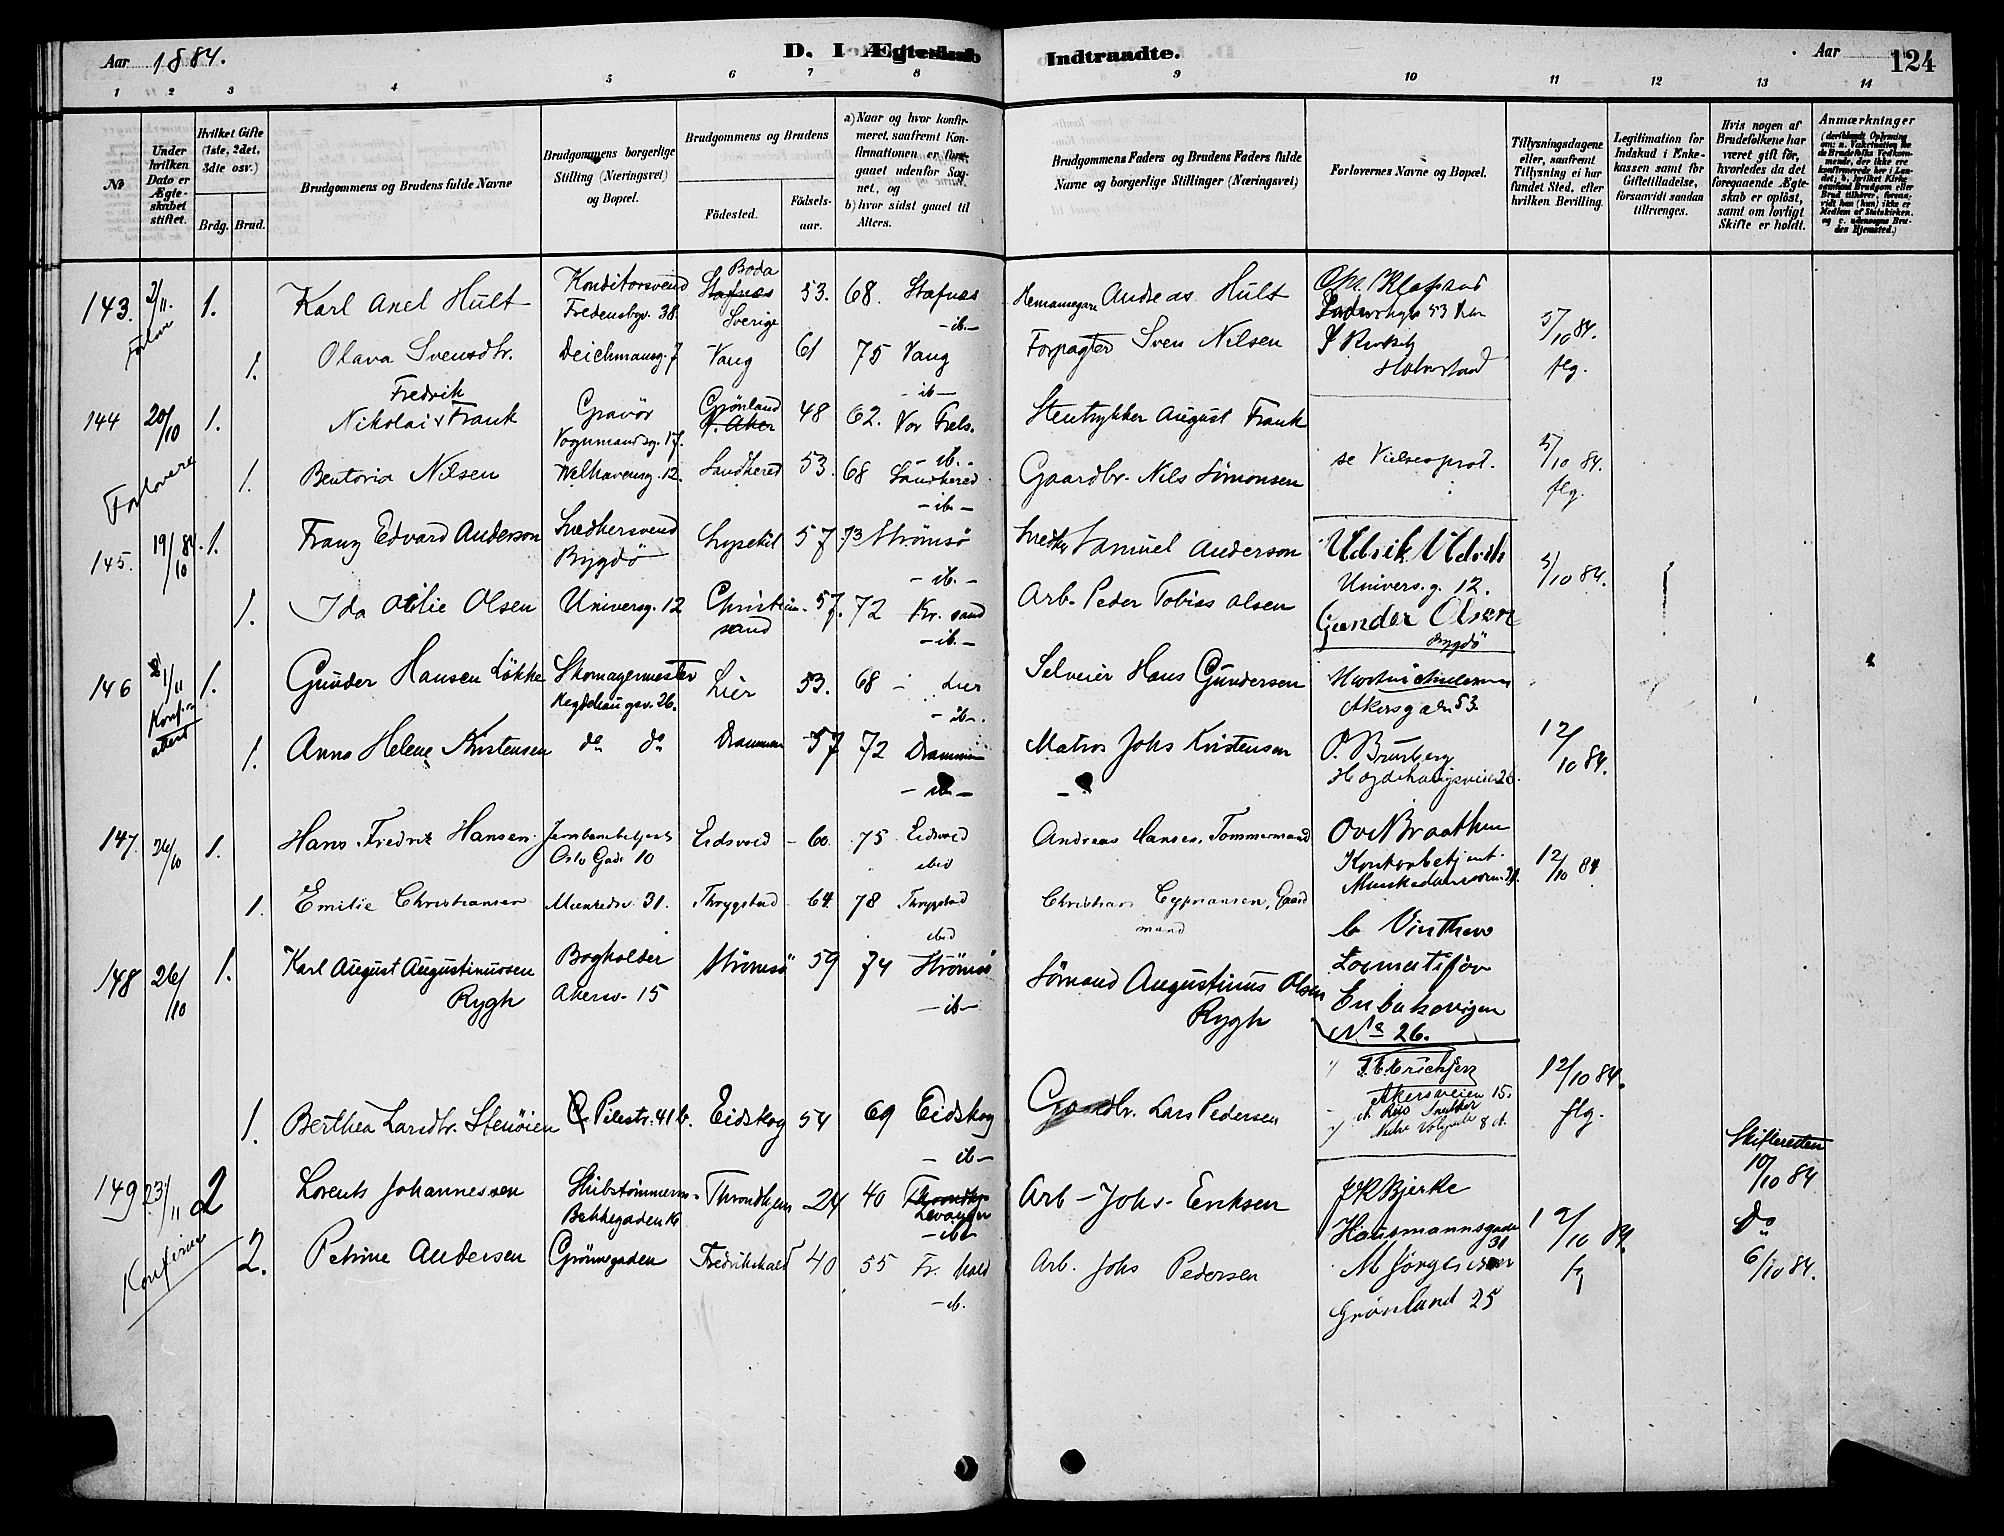 Aar 1884.
D. I Ægteskab Indtraadte.
Aar
124
1 2 3 4 5 6 7 8 9 10 11 12 13 14
No
Under hvilken Dato er Ægteskabet stiftet.
Hvilket Gifte (1ste, 2det, 3dte osv.)
Brdg. Brud.
Brudgommens og Brudens fulde Navne
Brudgommens borgerlige Stilling (Næringsvei) og Bopæl.
Brudgommens og Brudens
Födested. Födsels-aar.
a) Naar og hvor konfirmeret, saafremt Konfirmationen er foregaaet udenfor Sognet, og
b) hvor sidst gaaet til Alters.
Brudgommens Faders og Brudens Faders fulde Navne og borgerlige Stillinger (Næringsvei)
Forlovernes Navne og Bopæl.
Tillysningsdagene eller, saafremt Tillysning ei har fundet Sted, efter hvilken Bevilling.
Legitimation for Indskud i Enkekassen samt for Giftetilladelse, forsaavidt saadan tiltrænges.
Hvis nogen af Brudefolkene har været gift før, hvorledes da det foregaaende Ægteskab er oplöst, samt om lovligt Skifte er holdt.
Anmærkninger
143. 2/11. 1. Karl Axel Hult Konditorsvend Fredensbgv. 38. Boda Stafnæs Sverige 53. 68. Stafnæs -ib- Hemmansegare Andreas Hult
Forlove
1. Olava Svensdtr. Deichmansg. 7 Vang 61 75 Vang -ib- Forpagter Sven Nilsen Halmstad 5/10 84. flg.
144 20/10 1. Nikolai Fredrik Frank Gravör Vognmandsg. 17. Grönland V. Aker 48 62. Vor Frels. -ib.- Stentrykker August Frank
Forlovere
1. Bentoria Nilsen Welhavensg. 12. Sandhered 53. 68 Sandhered -ib- Gaardbr. Nils Simonsen se Vielsesprot. 5/10 84. flg.
145. 19/10 84. 1. Franz Edvard Anderson Snedkersvend Bygdö Lysekil 57 73 Strömsö -ib.- Snedker Samuel Anderson Univers.g. 12. 5/10 84.
1. Ida Otilie Olsen Universg. 12 Christiansand 57. 72 Kr. sand -ib- Arb. Peder Tobias Olsen Gunder Olsen Bygdö
146 1/11 1. Gunder Hansen Lökke Skomagermester Hegdehaugsv. 26. Lier 53. 68 - Lier -ib-. Selveier Hans Gundersen Akersgaden 53.
Konf. attest
1. Anna Helene Kristensen do do Drammen 57 72 Drammen -ib- Matros Johs Kristensen O. Brusberg Hegdehaugsveien 26. 12/10 84.
147. 26/10 1. Hans Fredrik Hansen Jernbanebetjent Oslo Gade 10 Eidsvold - 60 75 Eidsvold ibid Andreas Hansen, Tømmermand Ove Braathen Kontorbetjent 12/10 84
1. Emilie Christiansen Munkedsv. 31. Thrygstad - 64 78 Thrygstad ibid Christian Cypriansen, Gaardmand
148 26/10 1. Karl August Augustinussen Rygh Bogholder Akersv. 15 Strömsö 59 74 Strömsö -ib- Sömand Augustinus Olsen Rygh C Vinther No 26.
Akersveien 15.
1. Berthea Larsdtr. Stenöien Pilestr. 41 b. Eidskog 54 69 Eidskog -ib- Gaardbr. Lars Pedersen 12/10 84. flg.
149 23/11 2 Lorents Johannessen Skibstömmerm. Bakkegaden 16 Throndhjem 24 40 Throndhj. Levanger -ib- Arb - Johs. Eriksen J K Bjerke Hausmannsgade 31 12/10 84. Skifteretten 10/10 84
Konfirm
2. Petrine Andersen Grönnegaden Fredrikshald 40 55 Fr. hald -ib. Arb. Johs Pedersen M Jörgensen Grönland 25 Do 6/10 84.